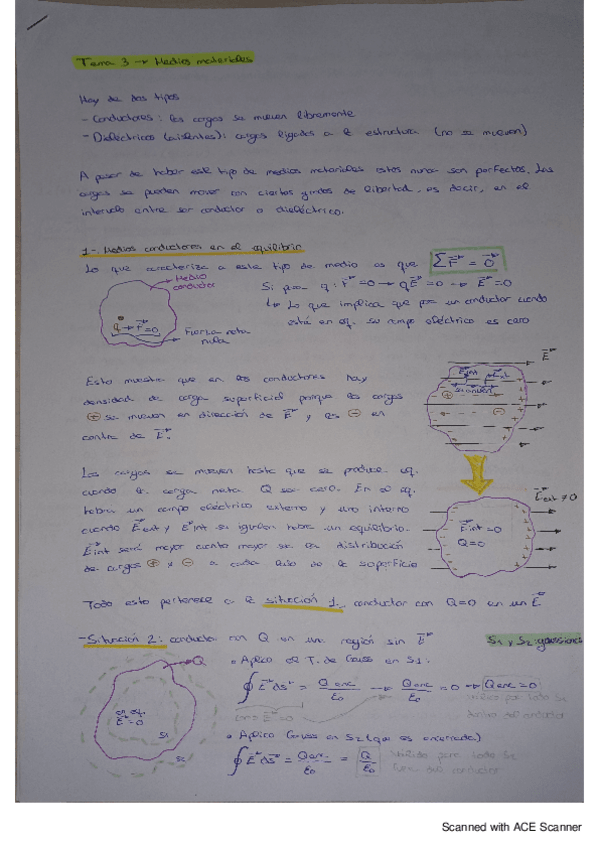 Tema 3 → Medios materiales
Hay de dos tipos
- Conductores: las cargas se mueven libremente
- Dieléctricos (aislantes): cargas ligadas a la estructura (no se mueven)
A pesar de haber este tipo de medios materiales estos nunca son perfectos. Las
cargas se pueden mover con ciertos grados de libertad, es decir, en el
intervalo entre ser conductor o dieléctrico.
1-. Medios conductores en el equilibrio
Lo que caracteriza a este tipo de medio es que Σ F = 0
Medio
conductor
q → F = 0
Fuerza neta
nula
Si q: F = 0 → qE = 0 → E = 0
↳ Lo que implica que un conductor cuando
está en eq. su campo eléctrico es cero
Esto muestra que en los conductores hay
densidad de carga superficial porque las cargas
⊕ se mueven en dirección de E y las ⊖ en
contra de E.
E
Eint
Las cargas se mueven hasta que se produce eq.
cuando la carga neta Q sea cero. En el eq.
habra un campo eléctrico externo y uno interno
cuando Eext y Eint se igualan habra un equilibrio.
Eint será mayor cuanto mayor sea la distribución
de cargas ⊕ y ⊖ a cada lado de la superficie
Eext ≠ 0
Eint = 0
Q = 0
Todo esto pertenece a la situación 1-. conductor con Q=0 en un E
- Situación 2: conductor con Q en una región sin E
S1 y S2: gaussianas
Q
en eq.
E = 0
S1
S2
• Aplico el T. de Gauss en S1:
∮ E ds = Qenc / ε0 → Qenc / ε0 = 0 → Qenc = 0
válido para todo S1
dentro del conductor
• Aplico Gauss en S2
∮ E ds = Qenc / ε0 = Q / ε0
válido para todo S2
fuera del conductor
Scanned with ACE Scanner